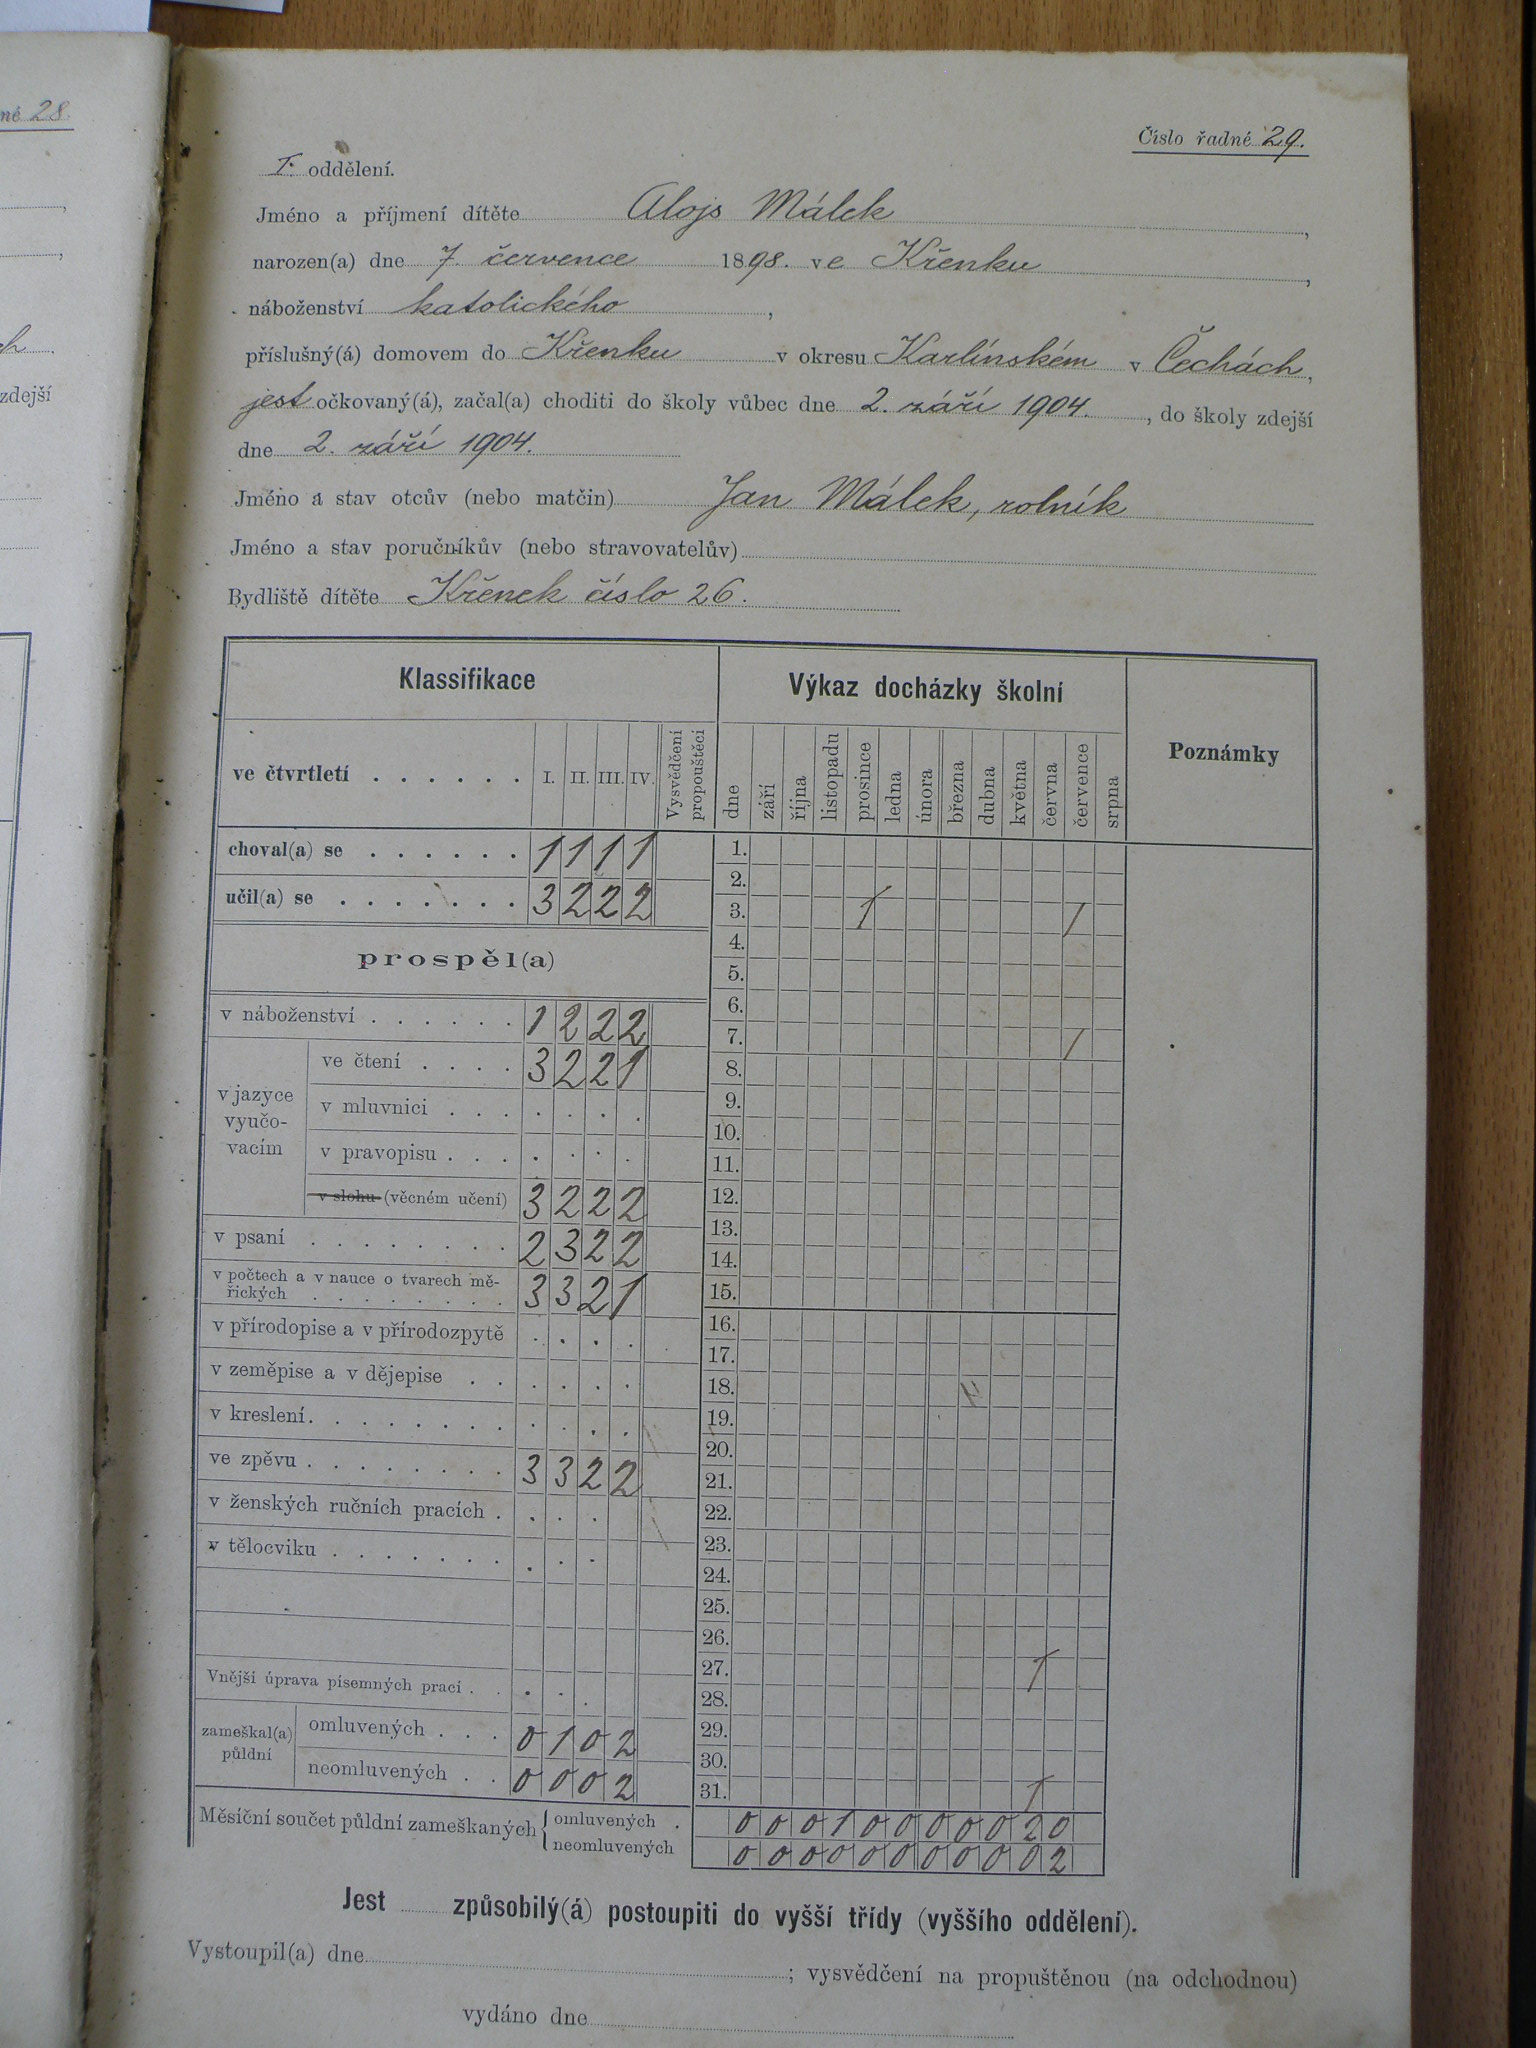 né 28.
ch
zdejší
Číslo řadné 29.
I. oddělení.
Jméno a příjmení dítěte Alojs Málek,
narozen(a) dne 7. července 1898. ve Křenku,
náboženství katolického,
příslušný(á) domovem do Křenku v okresu Karlínském v Čechách,
jest očkovaný(á), začal(a) choditi do školy vůbec dne 2. září 1904., do školy zdejší
dne 2. září 1904.
Jméno a stav otcův (nebo matčin) Jan Málek, rolník
Jméno a stav poručníkův (nebo stravovatelův)
Bydliště dítěte Křenek číslo 26.
Klassifikace
Výkaz docházky školní
Poznámky
ve čtvrtletí I. II. III. IV. Vysvědčení propouštěcí
dne září října listopadu prosince ledna února března dubna května června července srpna
choval(a) se 1 1 1 1
učil(a) se 3 2 2 2
prospěl(a)
v náboženství 1 2 2 2
v jazyce vyučo-vacím
ve čtení 3 2 2 1
v mluvnici
v pravopisu
v slohu (věcném učení) 3 2 2 2
v psaní 2 3 2 2
v počtech a v nauce o tvarech mě-
řických 3 3 2 1
v přírodopise a v přírodozpytě
v zeměpise a v dějepise
v kreslení
ve zpěvu 3 3 2 2
v ženských ručních pracích
v tělocviku
Vnější úprava písemných prací
zameškal(a) půldní
omluvených 0 1 0 2
neomluvených 0 0 0 2
1.
2.
3. 1 1
4.
5.
6.
7. 1
8.
9.
10.
11.
12.
13.
14.
15.
16.
17.
18.
19.
20.
21.
22.
23.
24.
25.
26.
27. 1
28.
29.
30.
31. 1
Měsíční součet půldní zameškaných
omluvených 0 0 0 1 0 0 0 0 0 2 0
neomluvených 0 0 0 0 0 0 0 0 0 0 2
Jest způsobilý(á) postoupiti do vyšší třídy (vyššího oddělení).
Vystoupil(a) dne ; vysvědčení na propuštěnou (na odchodnou)
vydáno dne